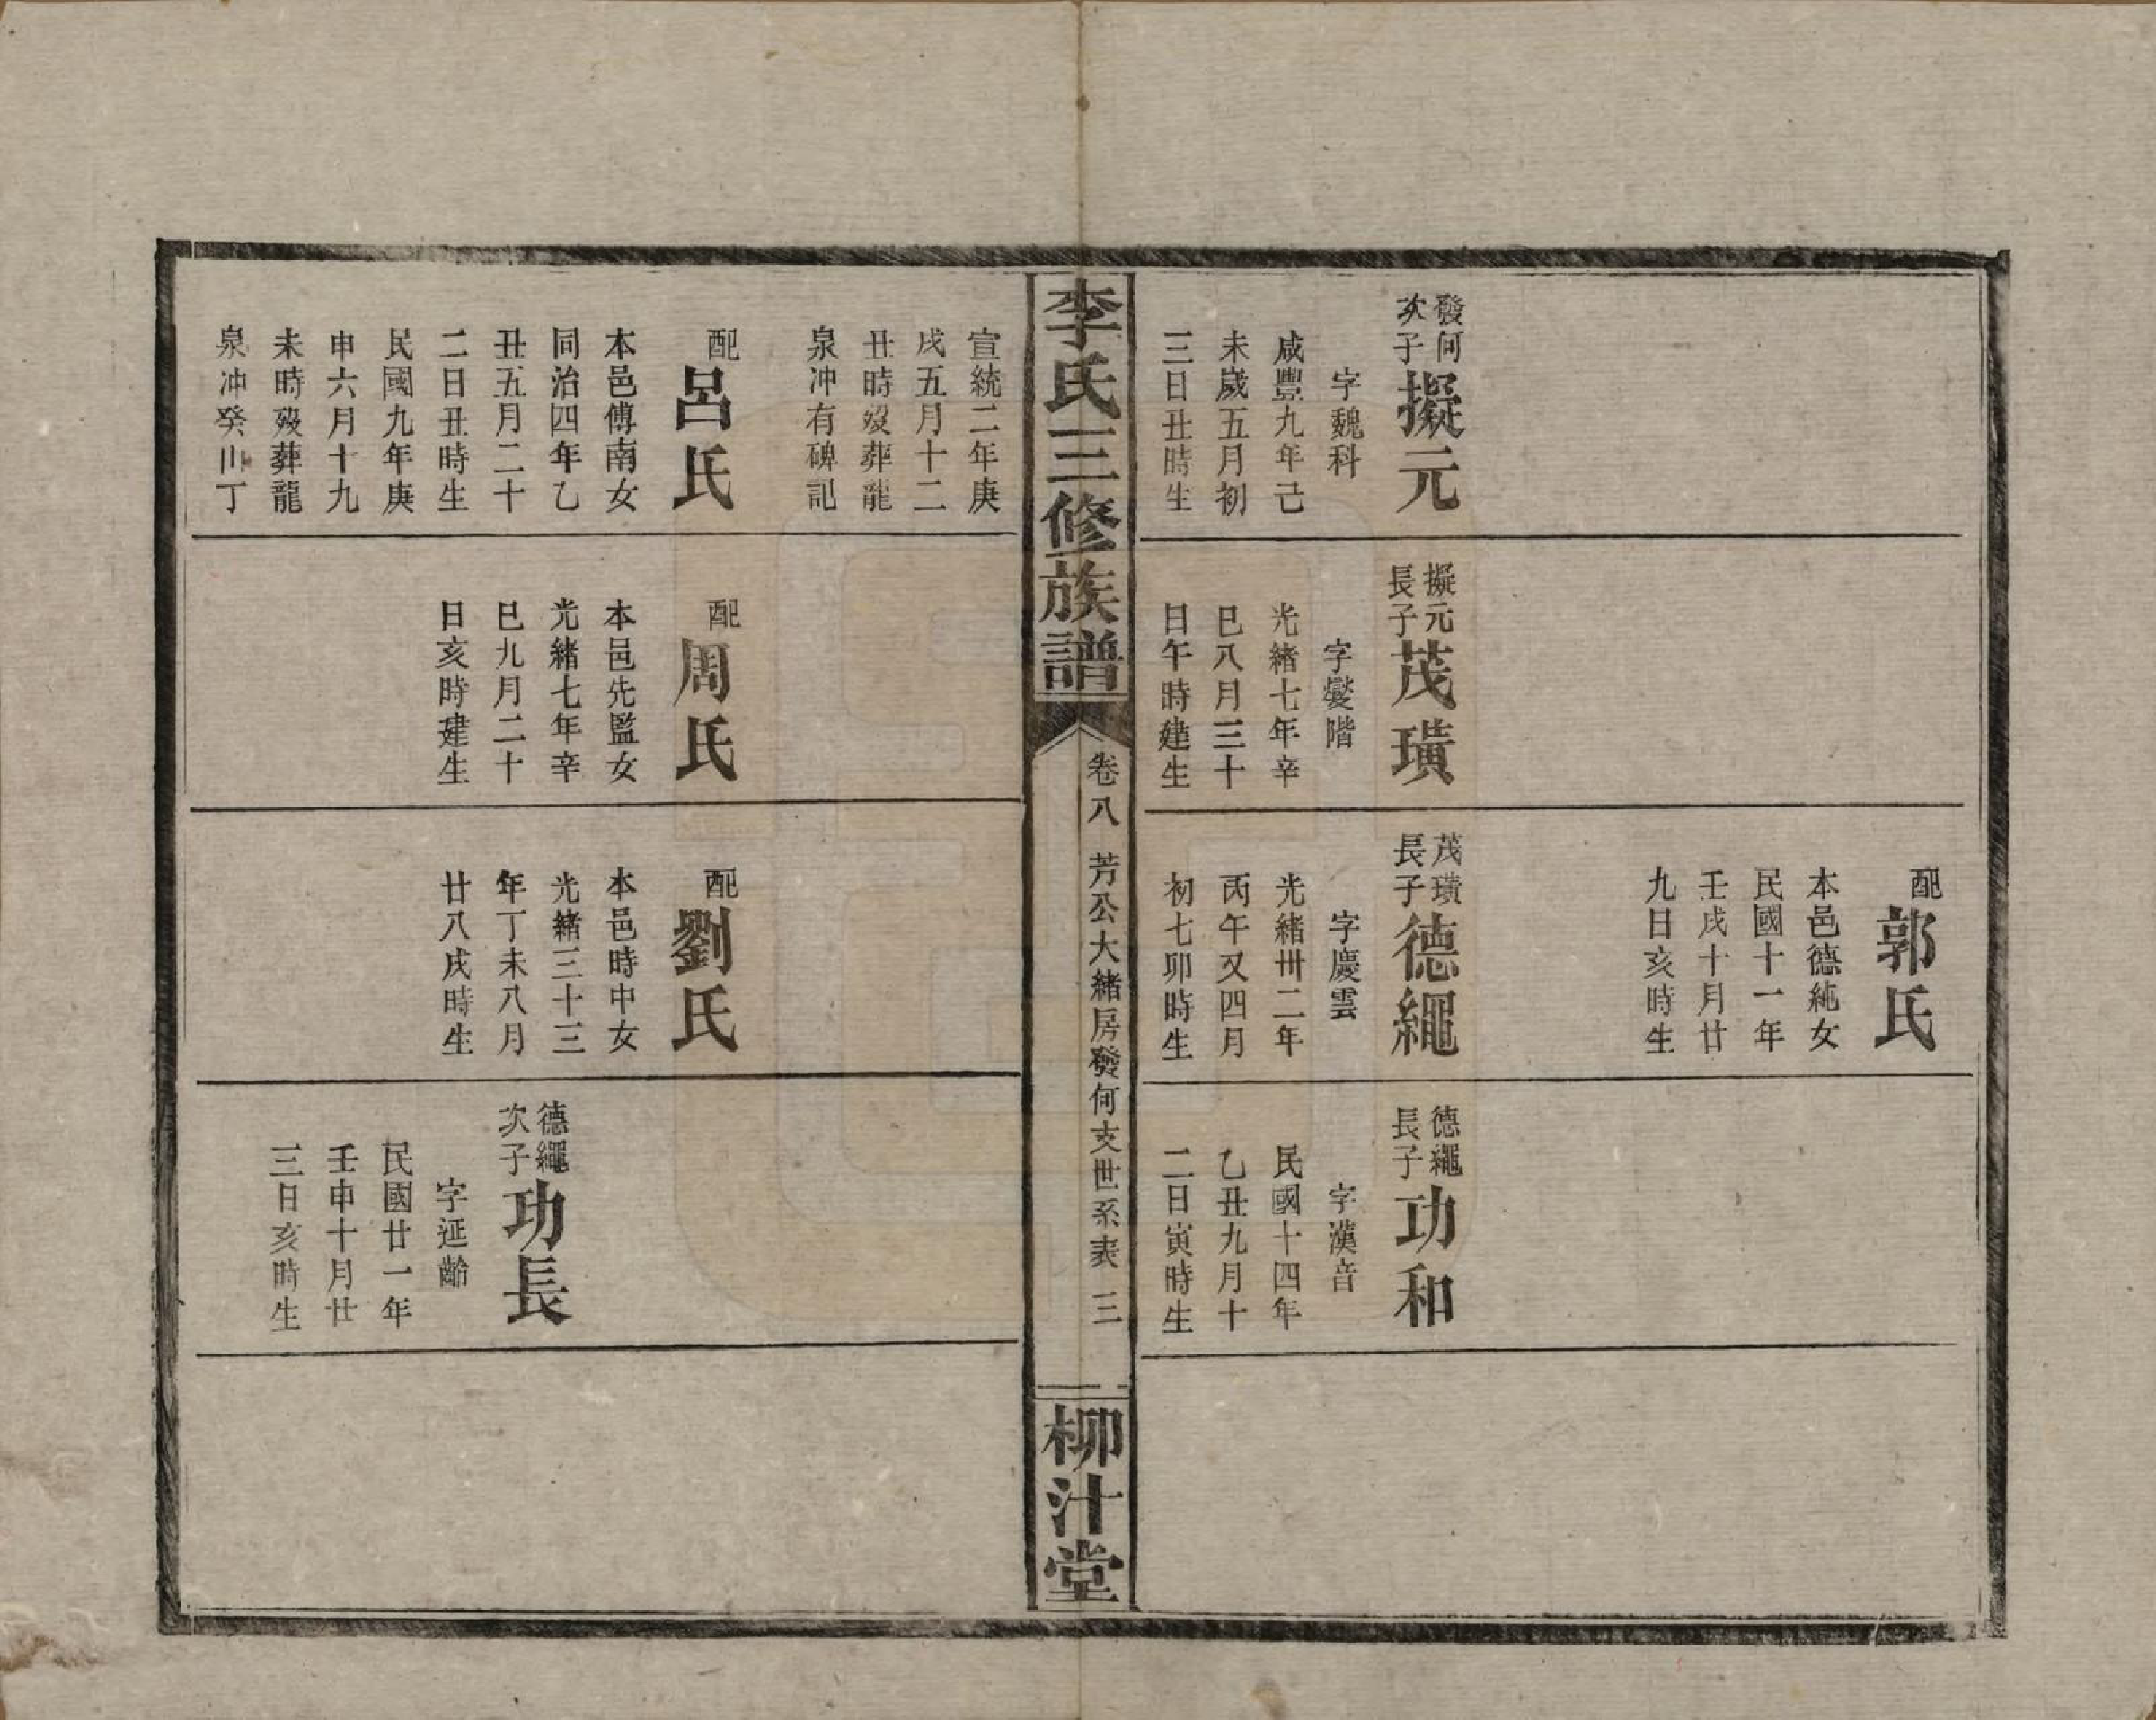 發何
次子
擬元
字魏科
咸豐九年己
未歲五月初
三日丑時生
擬元
長子
茂璜
字燮階
光緒七年辛
巳八月三十
日午時建生
配
郭氏
本邑德純女
民國十一年
壬戌十月廿
九日亥時生
茂璜
長子
德繩
字慶雲
光緒卅二年
丙午又四月
初七卯時生
德繩
長子
功和
字漢音
民國十四年
乙丑九月十
二日寅時生
李氏三修族譜
卷八 芳公大緒房發何支世系表 三
柳汁堂
宣統二年庚
戌五月十二
丑時歿葬龍
泉冲有碑記
配
呂氏
本邑傅南女
同治四年乙
丑五月二十
二日丑時生
民國九年庚
申六月十九
未時歿葬龍
泉冲癸山丁
配
周氏
本邑先監女
光緒七年辛
巳九月二十
日亥時建生
配
劉氏
本邑時中女
光緒三十三
年丁未八月
廿八戌時生
德繩
次子
功長
字延齡
民國廿一年
壬申十月廿
三日亥時生